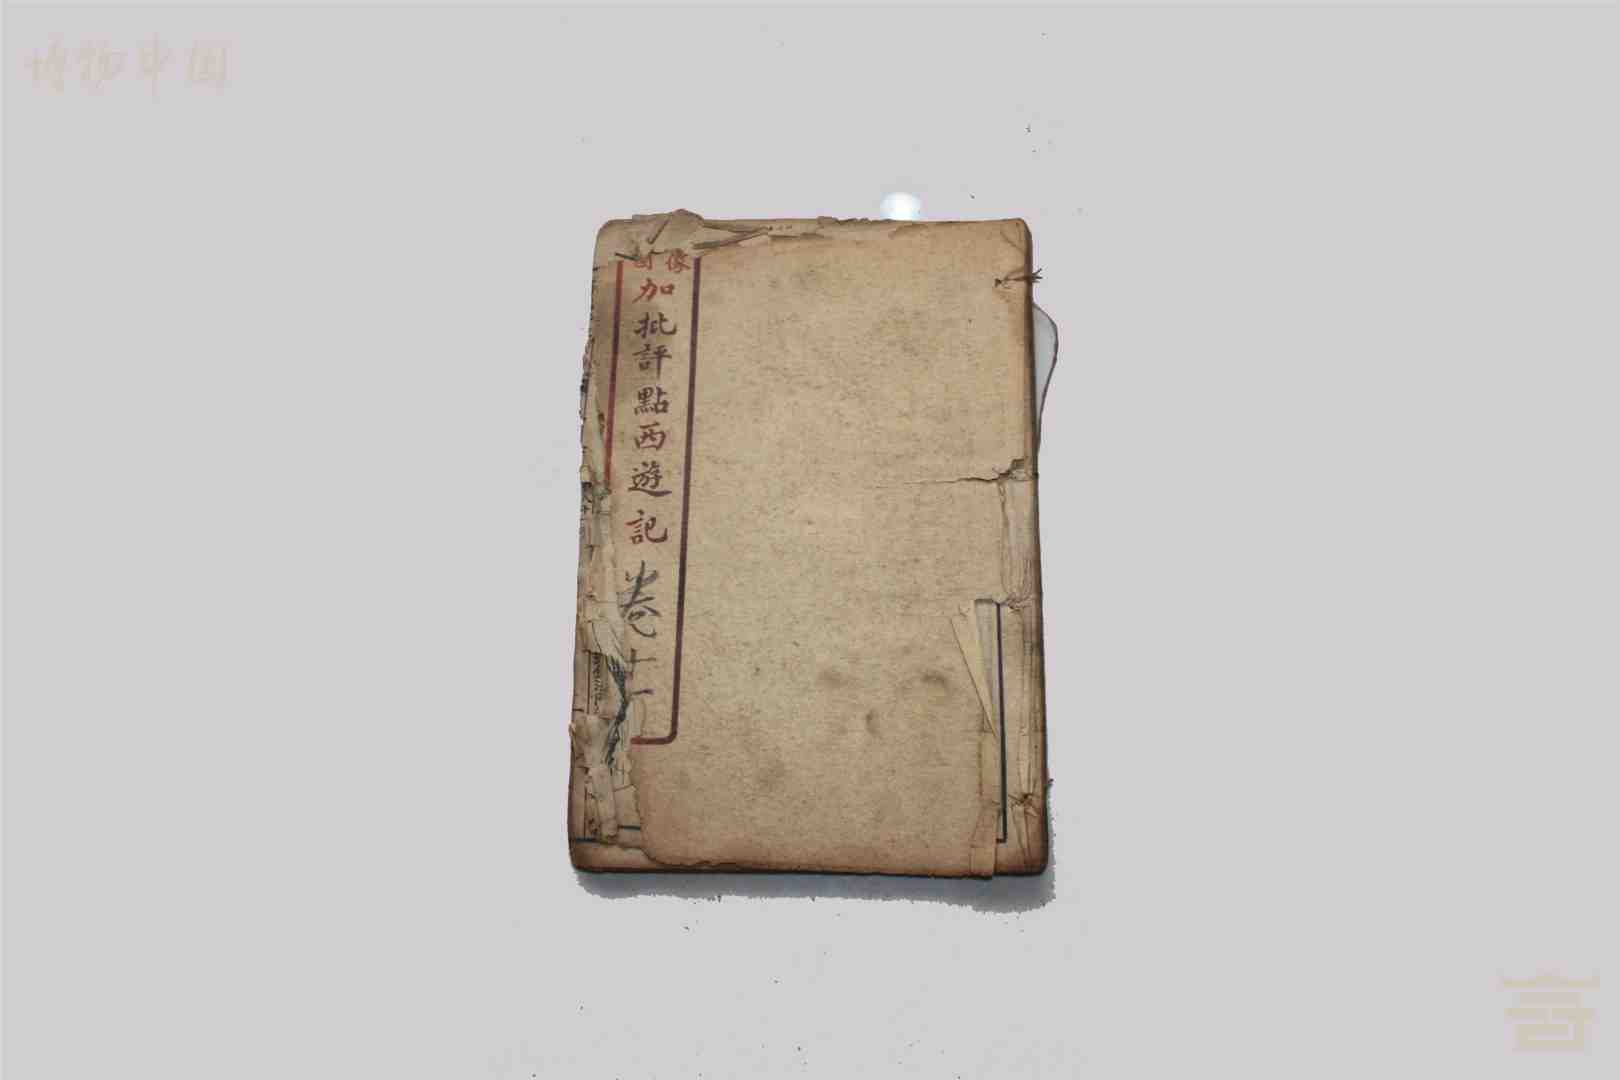 博物中国
圖像
加批評點西遊記
卷十一